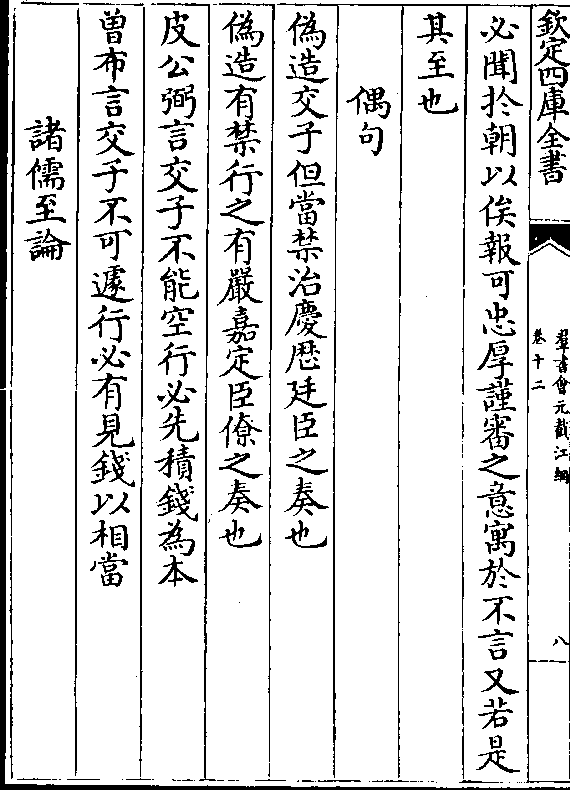 欽定四庫全書
羣書會元截江網
卷十二
八
必聞扵朝以俟報可忠厚謹審之意寓於不言又若是
其至也
偶句
偽造交子但當禁治慶厯廷臣之奏也
偽造有禁行之有嚴嘉定臣僚之奏也
皮公弼言交子不能空行必先積錢為本
曽布言交子不可遽行必有見錢以相當
諸儒至論